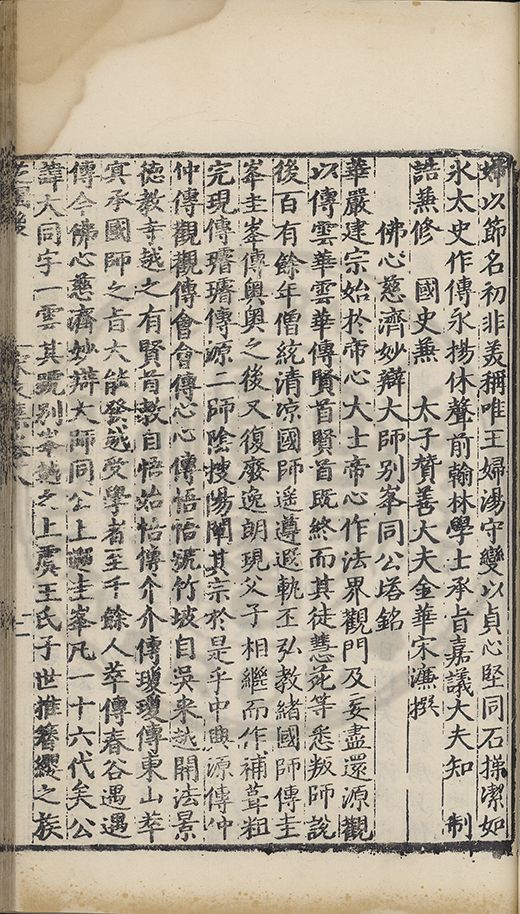 婦以節名初非美稱唯王婦湯守變以貞心堅同石操潔如
氷太史作傳永揚休聲前翰林學士承旨嘉議大夫知　制
誥兼修　國史兼　太子贊善大夫金華宋濂撰
佛心慈濟妙辯大師別峯同公塔銘
華嚴建宗始於帝心大士帝心作法界觀門及妄盡還源觀
以傳雲華雲華傳賢首賢首既終而其徒慧苑等悉叛師說
後百有餘年僧統清凉國師遥遵遐軌丕弘教緒國師傳圭
峯圭峯傳奧奧之後又復廢逸朗現父子相繼而作補葺粗
完現傳璿璿傳源二師陰搜陽闡其宗於是乎中興源傳冲
仲傳觀觀傳會會傳心心傳悟悟號竹坡自吳來越開法景
德教寺越之有賢首教自悟始悟傳介介傳瓊瓊傳東山萃
真承國師之旨大能發越受學者至千餘人萃傳春谷遇遇
傳今佛心慈濟妙辯大師同公上遡圭峯凡一十六代矣公
諱大同字一雲其號別峯越之上虞王氏子世推簪纓之族